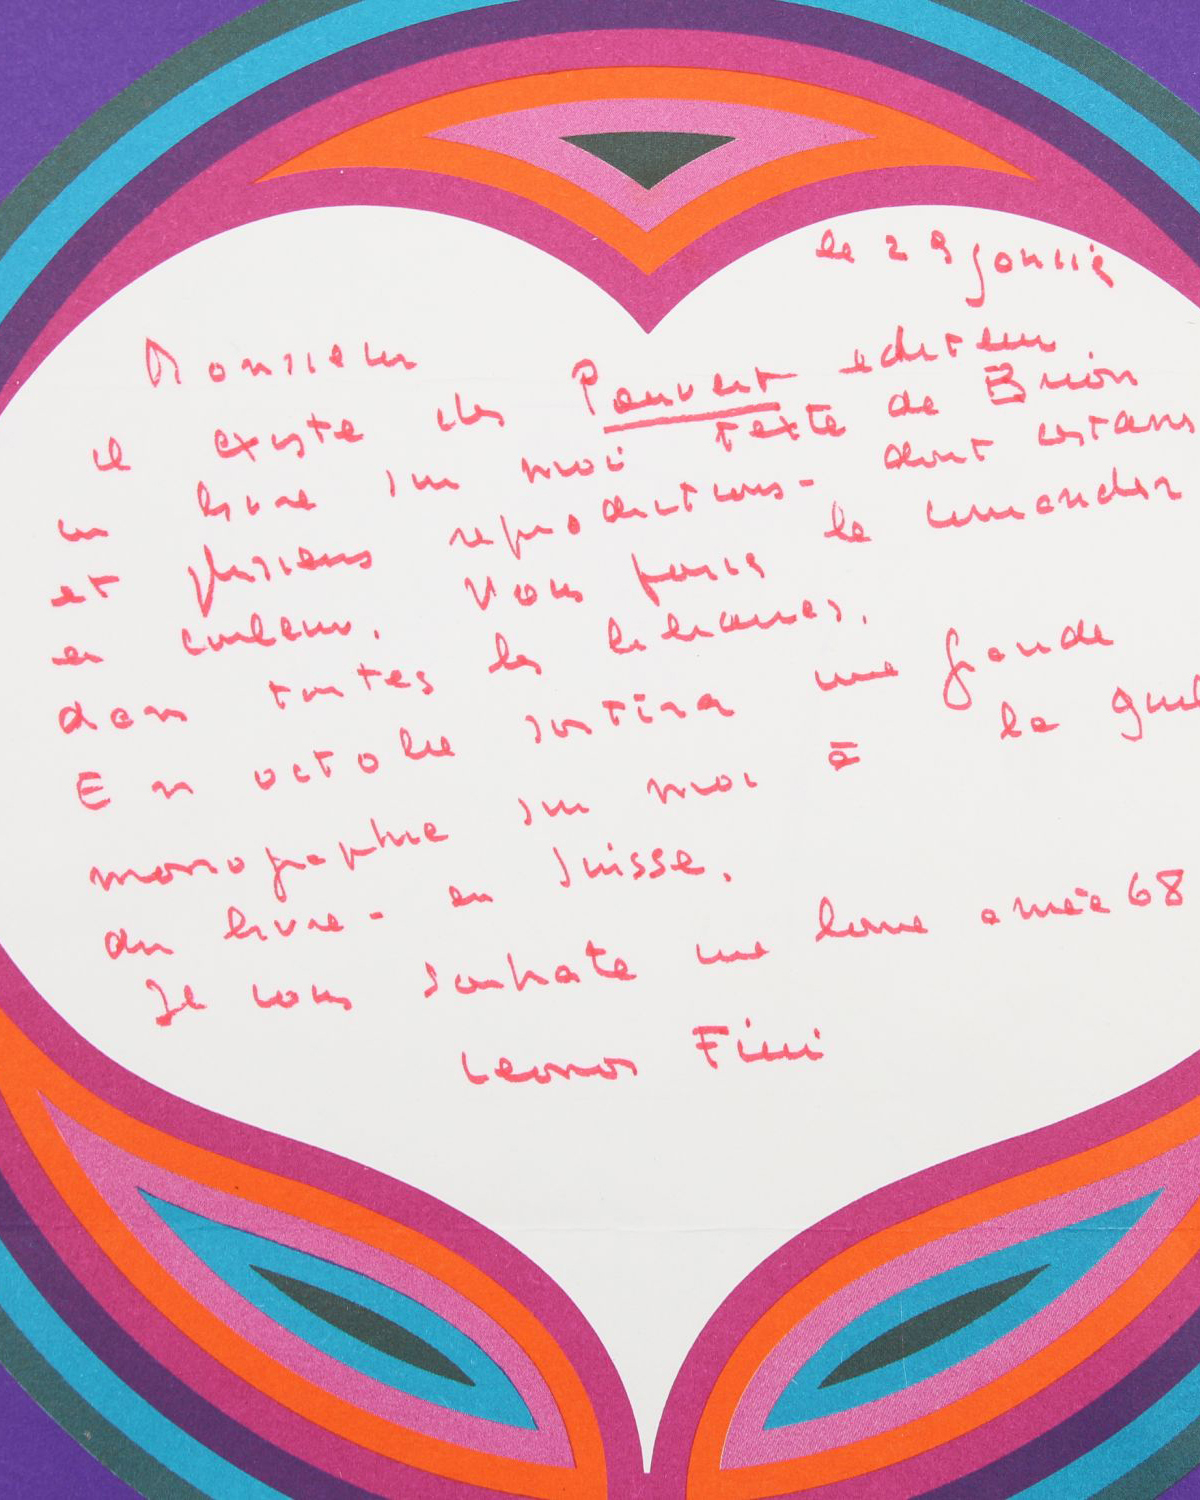 le 29 janvier
Monsieur
il existe chez Pauvert editeur
un livre sur moi texte de Brion
et plusieurs reproductions - dont certains
en couleur. Vous pouvez le commander
dans toutes les librairies.
En octobre sortira une grande
monographie sur moi à la Guil
du livre - en Suisse.
Je vous souhaite une bonne année 68
Leonor Fini